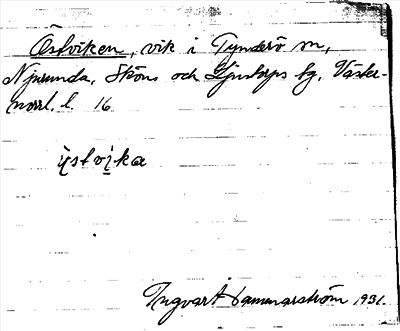 Östviken, vik i Tynderö sn,
Njurunda, Sköns och Ljustorps tg, Väster-
norrl. l. 16
ystvika
Ingvart Hammarström 1931.